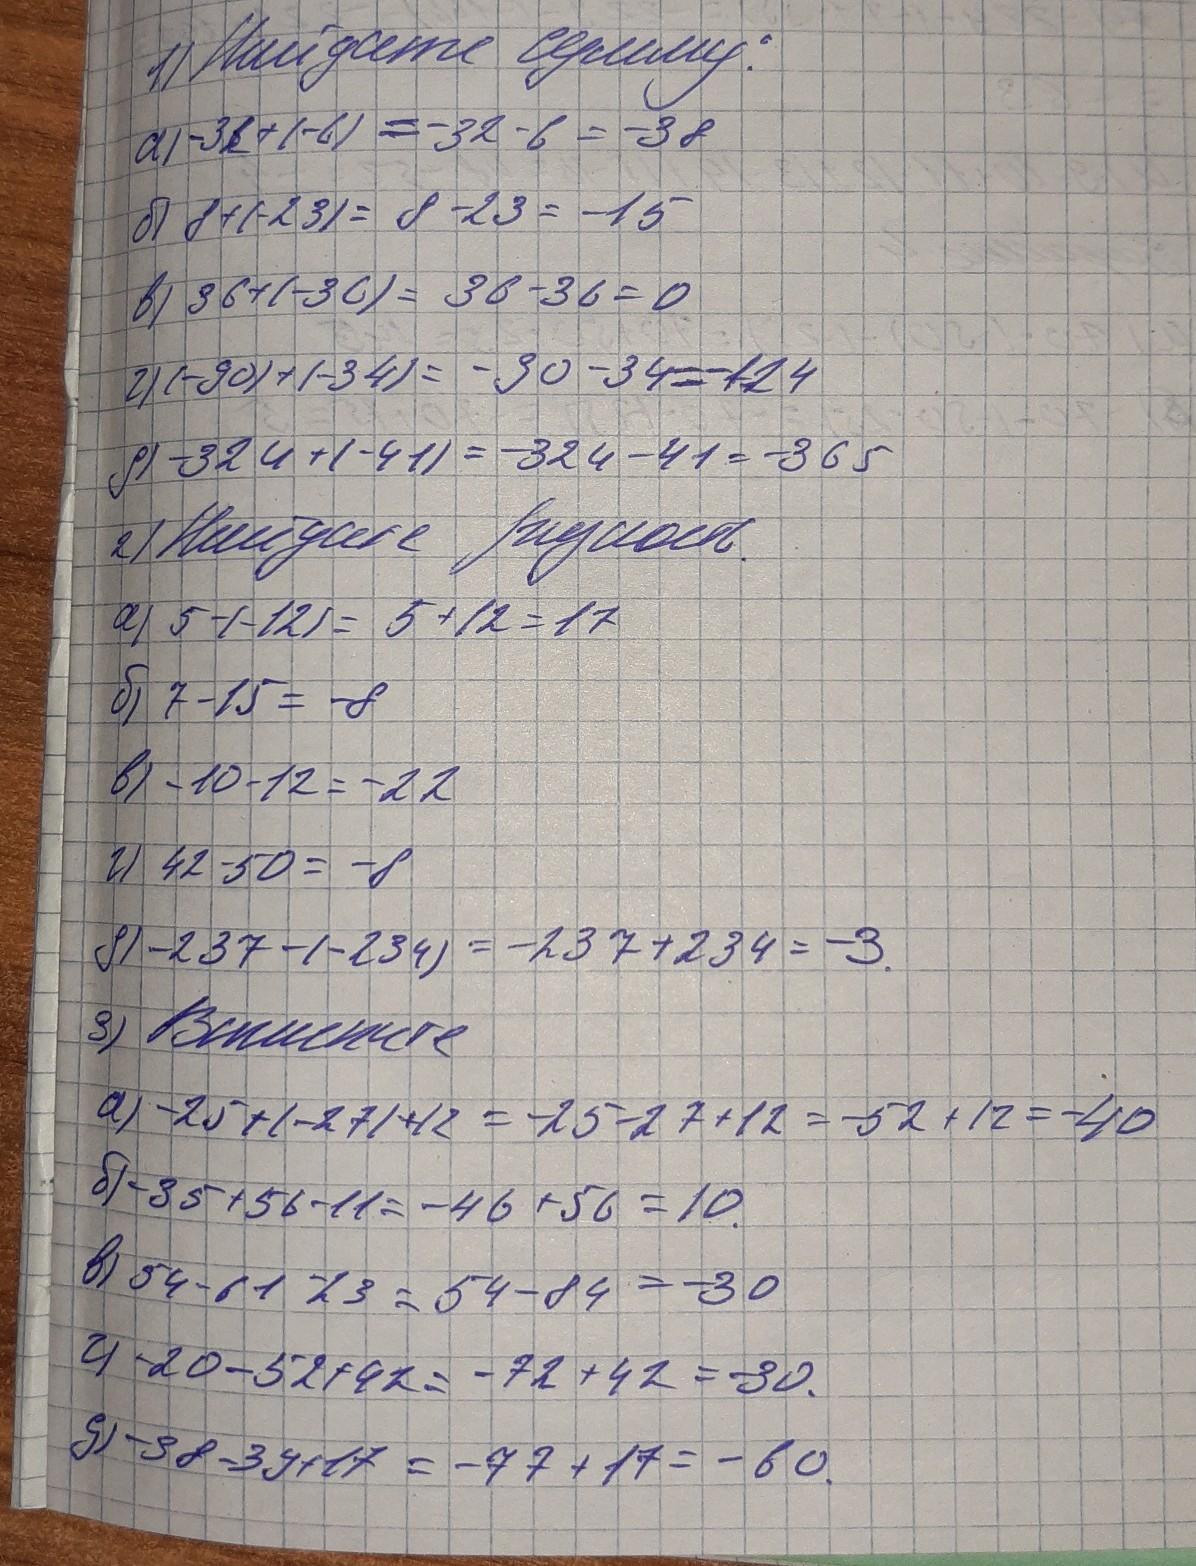 1) Найдите сумму:
а) -32+(-6) = -32-6 = -38
б) 8+(-23) = 8-23 = -15
в) 36+(-36) = 36-36 = 0
г) (-90)+(-34) = -90-34 = -124
д) -324+(-41) = -324-41 = -365
2) Найдите разность.
а) 5-(-12) = 5+12 = 17
б) 7-15 = -8
в) -10-12 = -22
г) 42-50 = -8
д) -237-(-234) = -237+234 = -3.
3) Вычислите
а) -25+(-27)+12 = -25-27+12 = -52+12 = -40
б) -35+56-11 = -46+56 = 10.
в) 54-61-23 = 54-84 = -30
г) -20-52+42 = -72+42 = -30.
д) -38-39+17 = -77+17 = -60.